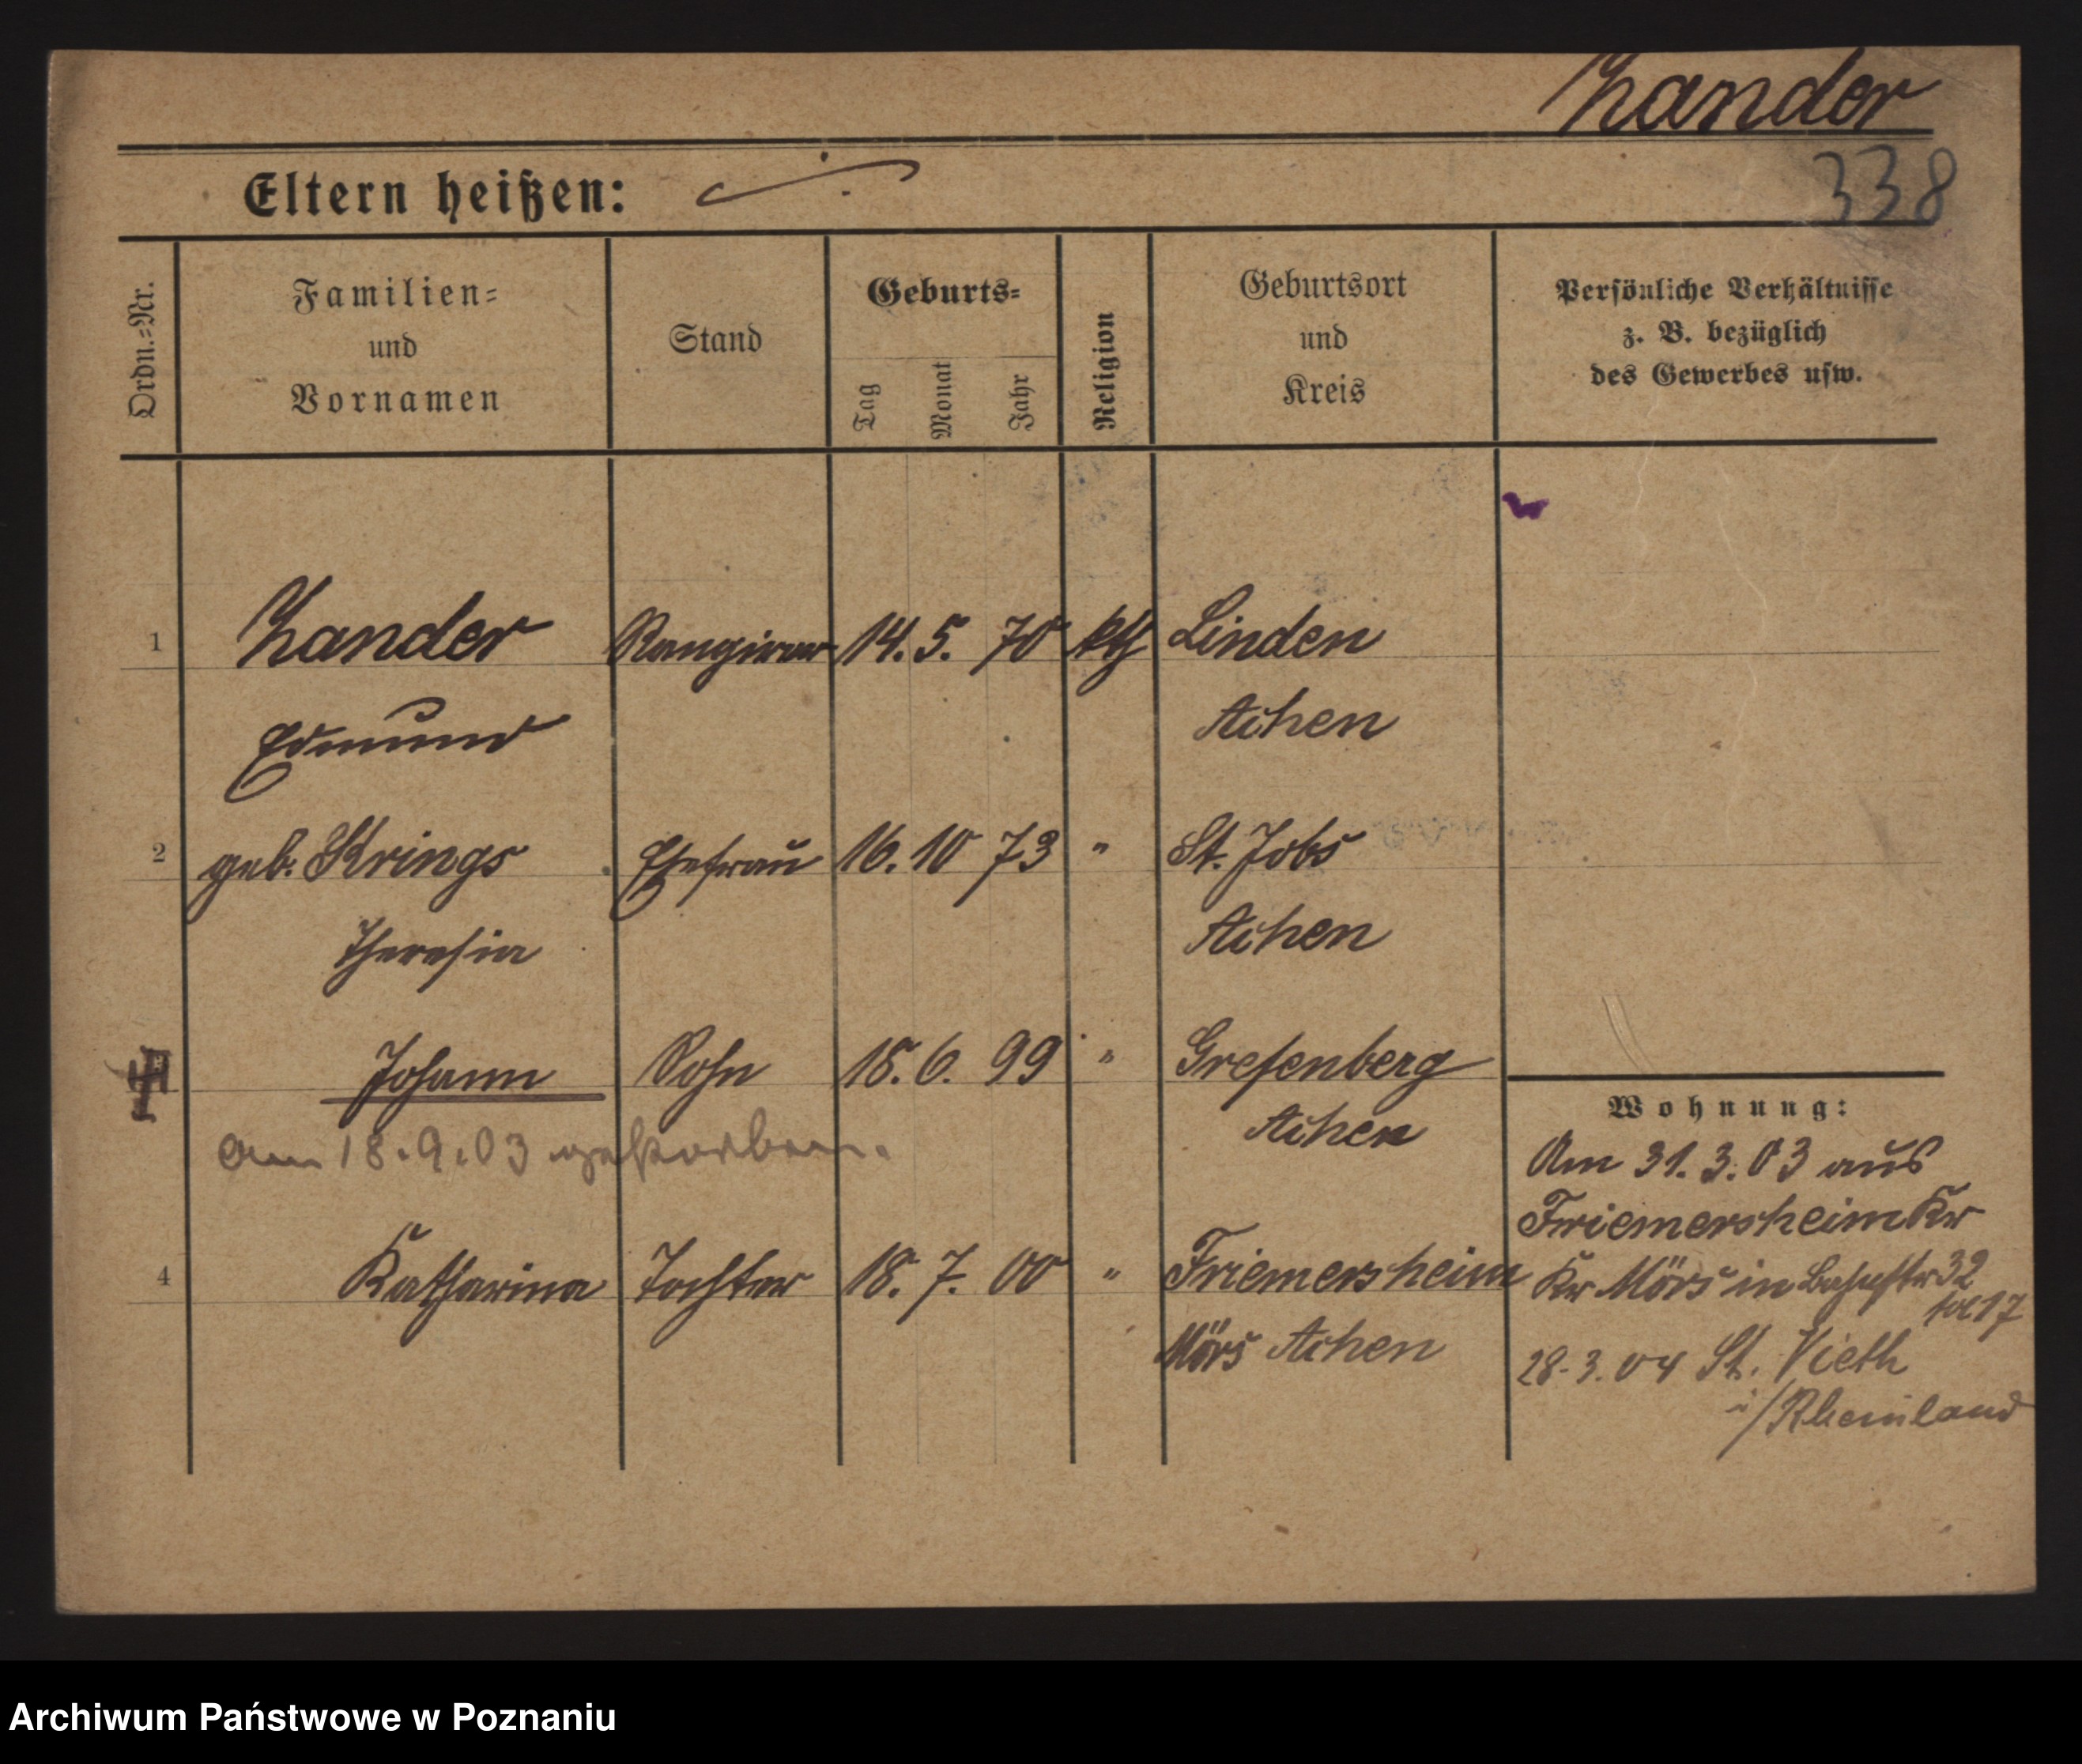 Zander
338
Eltern heißen:
Ordn.-Nr.
Familien-
und
Vornamen
Stand
Geburts-
Tag
Monat
Jahr
Religion
Geburtsort
und
Kreis
Persönliche Verhältnisse
z. B. bezüglich
des Gewerbes usw.
1 Zander Rangierer 14. 5. 70 kth Linden
Edmund Achen
2 geb. Krings Ehefrau 16. 10 73 " St. Jobs
Theresia Achen
Johann Sohn 18. 6. 99 " Gresenberg
Achen
am 18.9.03 gestorben.
4 Katharina Tochter 18. 7. 00 " Friemersheim
Mörs Achen
Wohnung:
Am 31. 3. 03 aus
Friemersheim Kr
Kr Mörs in 32
17
28. 3. 04 St. Vieth
i/Rheinland
Archiwum Państwowe w Poznaniu